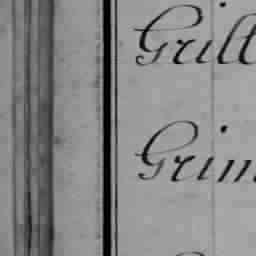 Grill
Grim